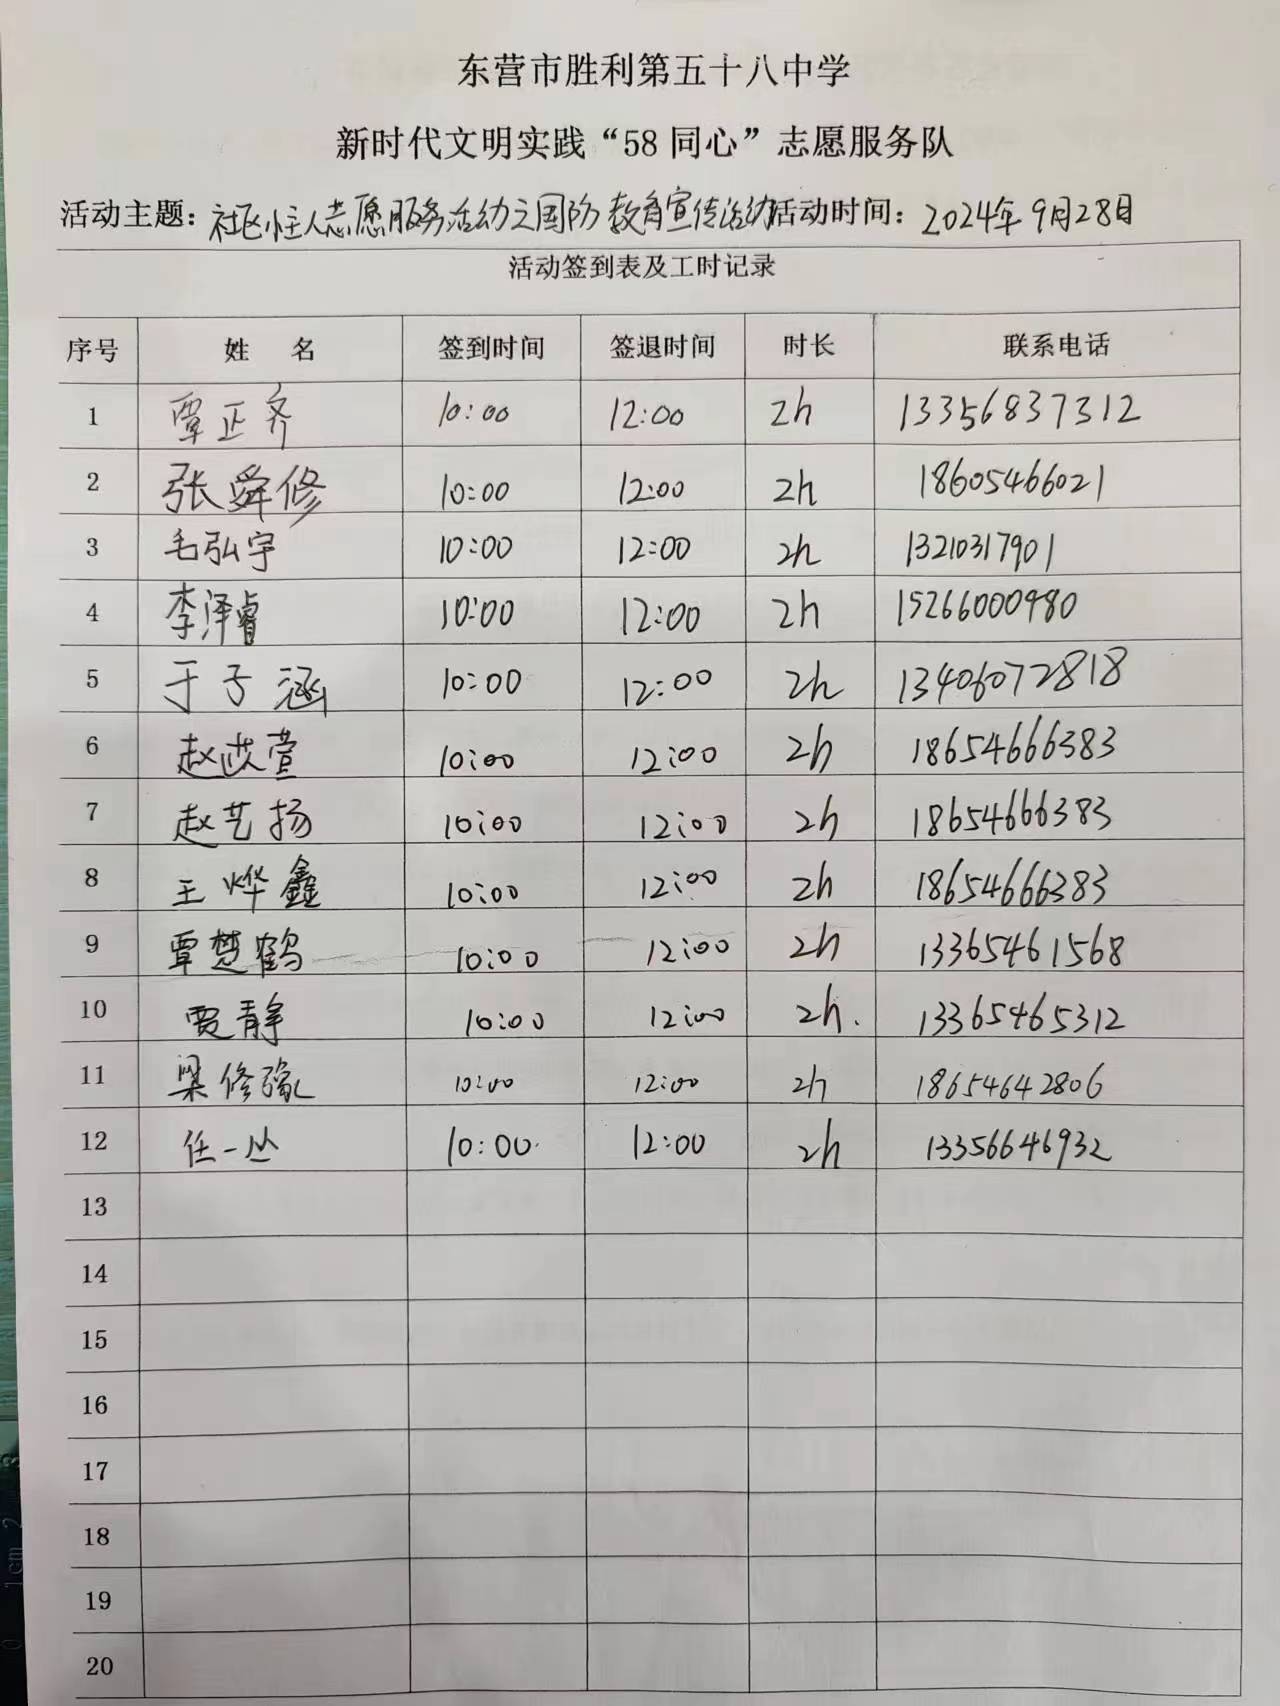 东营市胜利第五十八中学
新时代文明实践“58 同心”志愿服务队
活动主题：社区小主人志愿服务活动之国防教育宣传活动 活动时间：2024年9月28日
活动签到表及工时记录
序号 姓 名 签到时间 签退时间 时长 联系电话
1 覃正齐 10:00 12:00 2h 13356837312
2 张舜修 10:00 12:00 2h 18605466021
3 毛弘宇 10:00 12:00 2h 13210317901
4 李泽睿 10:00 12:00 2h 15266000980
5 于子涵 10:00 12:00 2h 13406072818
6 赵萱 10:00 12:00 2h 18654666383
7 赵艺扬 10:00 12:00 2h 18654666383
8 王烨鑫 10:00 12:00 2h 18654666383
9 覃楚鹤 10:00 12:00 2h 13365461568
10 贾静 10:00 12:00 2h. 13365465312
11 梁修 10:00 12:00 2h 18654642806
12 任一丛 10:00 12:00 2h 13356646932
13
14
15
16
17
18
19
20
0 1cm 2 3